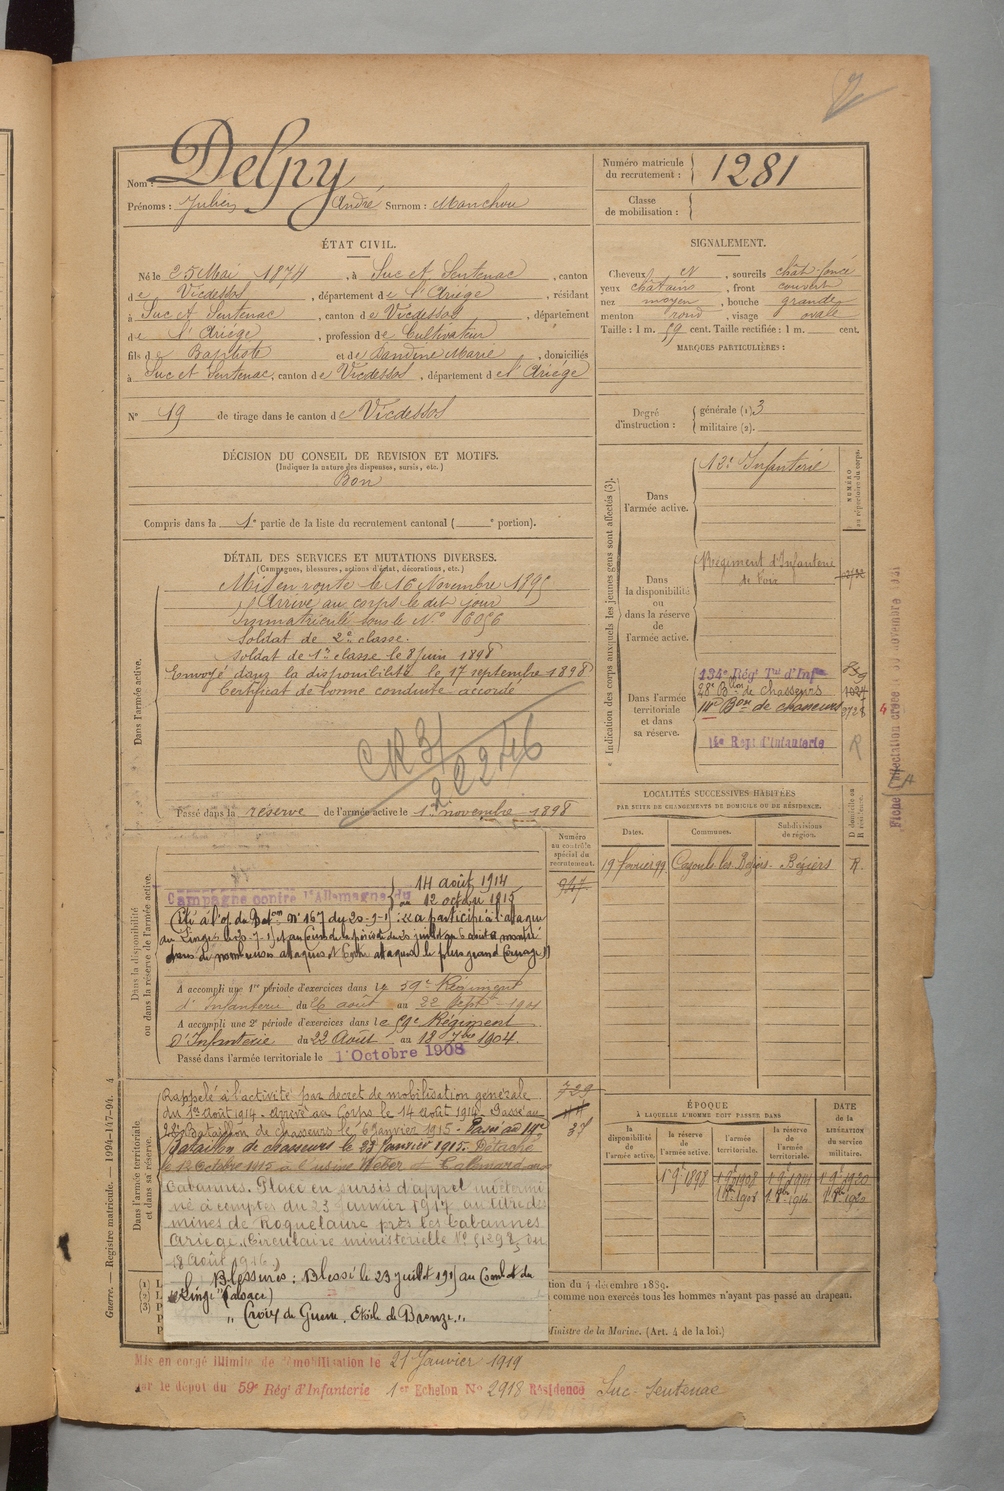 Nom : Delpy
Prénoms : Julien André Surnom : Manchou
Numéro matricule du recrutement : 1281
Classe de mobilisation :
ÉTAT CIVIL.
Né le 25 Mai 1874, à Suc et Sentenac, canton
de Vicdessos, département de l'Ariége, résidant
à Suc et Sentenac, canton de Vicdessos, département
de l'Ariége, profession de Cultivateur
fils de Baptiste et de Dandine Marie, domiciliés
à Suc et Sentenac, canton de Vicdessos, département de l'Ariége
N° 19 de tirage dans le canton de Vicdessos
SIGNALEMENT.
Cheveux N, sourcils chât. foncé
yeux chatains, front couvert
nez moyen, bouche grande
menton rond, visage ovale
Taille : 1 m. 59 cent. Taille rectifiée : 1 m. cent.
MARQUES PARTICULIÈRES :
Degré d'instruction : générale (1). 3
militaire (2).
DÉCISION DU CONSEIL DE REVISION ET MOTIFS.
(Indiquer la nature des dispenses, sursis, etc.)
Bon
Compris dans la 1e partie de la liste du recrutement cantonal ( e portion).
DÉTAIL DES SERVICES ET MUTATIONS DIVERSES.
(Campagnes, blessures, actions d'éclat, décorations, etc.)
Dans l'armée active.
Mis en route le 16 Novembre 1895
Arrivé au corps le dit jour
Immatriculé sous le N° 6056
Soldat de 2e classe.
Soldat de 1re classe le 8 Juin 1898
Envoyé dans la disponibilité le 17 septembre 1898
Certificat de bonne conduite accordé
CR 31
22246
Passé dans la réserve de l'armée active le 1er novembre 1898
Dans la disponibilité ou dans la réserve de l'armée active.
Numéro au contrôle spécial du recrutement.
Campagne contre l'Allemagne du 14 août 1914
au 12 octobre 1915
A accompli une 1re période d'exercices dans le 59e Régiment
d'Infanterie du 26 août au 22 Sept. 1901
A accompli une 2e période d'exercices dans le 59e Régiment
d'Infanterie du 22 Août au 18 7bre 1904.
Passé dans l'armée territoriale le 1 Octobre 1908
Dans l'armée territoriale et dans sa réserve.
Rappelé à l'activité par decret de mobilisation générale
du 1er Août 1914. Arrivé au Corps le 14 Août 1914. Passé au
28e Bataillon de chasseurs le 6 Janvier 1915. Passé au 14e
Bataillon de chasseurs le 23 Janvier 1915. Détaché
le 12 Octobre 1915 à l'usine Weber
Cabannes. Placé en sursis d'appel
à compter du 23 Janvier 1917 au titre des
mines de Roquelaure près les Cabannes
Ariège. (Circulaire ministerielle N°
Août 1916)
Blessures : Blessé le 23 juillet au Combat du
Linge (Alsace)
" Croix de Guerre. Etoile de Bronze. "
729
37
Indication des corps auxquels les jeunes gens sont affectés (3).
NUMÉRO au répertoire du corps.
Dans l'armée active.
12e Infanterie
Dans la disponibilité ou dans la réserve de l'armée active.
Régiment d'Infanterie
de Foix
Dans l'armée territoriale et dans sa réserve.
134e Régt Tal d'Infie
28e Bton de Chasseurs
14e Bon de chasseurs
14e Regt d'Infanterie
R
LOCALITÉS SUCCESSIVES HABITÉES
PAR SUITE DE CHANGEMENTS DE DOMICILE OU DE RÉSIDENCE.
D domicile ou R résidence.
Dates. Communes. Subdivisions de région.
19 février 99 Cazouls-les-Béziers. Béziers R.
ÉPOQUE
À LAQUELLE L'HOMME DOIT PASSER DANS
DATE de la LIBÉRATION du service militaire.
la disponibilité de l'armée active.
la réserve de l'armée active.
l'armée territoriale.
la réserve de l'armée territoriale.
tion du 4 décembre 1889.
comme non exercés tous les hommes n'ayant pas passé au drapeau.
Ministre de la Marine. (Art. 4 de la loi.)
Guerre. — Registre matricule. — 1994-147-94. 4
Mis en congé illimité de démobilisation le 21 Janvier 1919
par le dépôt du 59e Régt d'Infanterie 1er Echelon No 2918 Résidence Suc-Sentenac